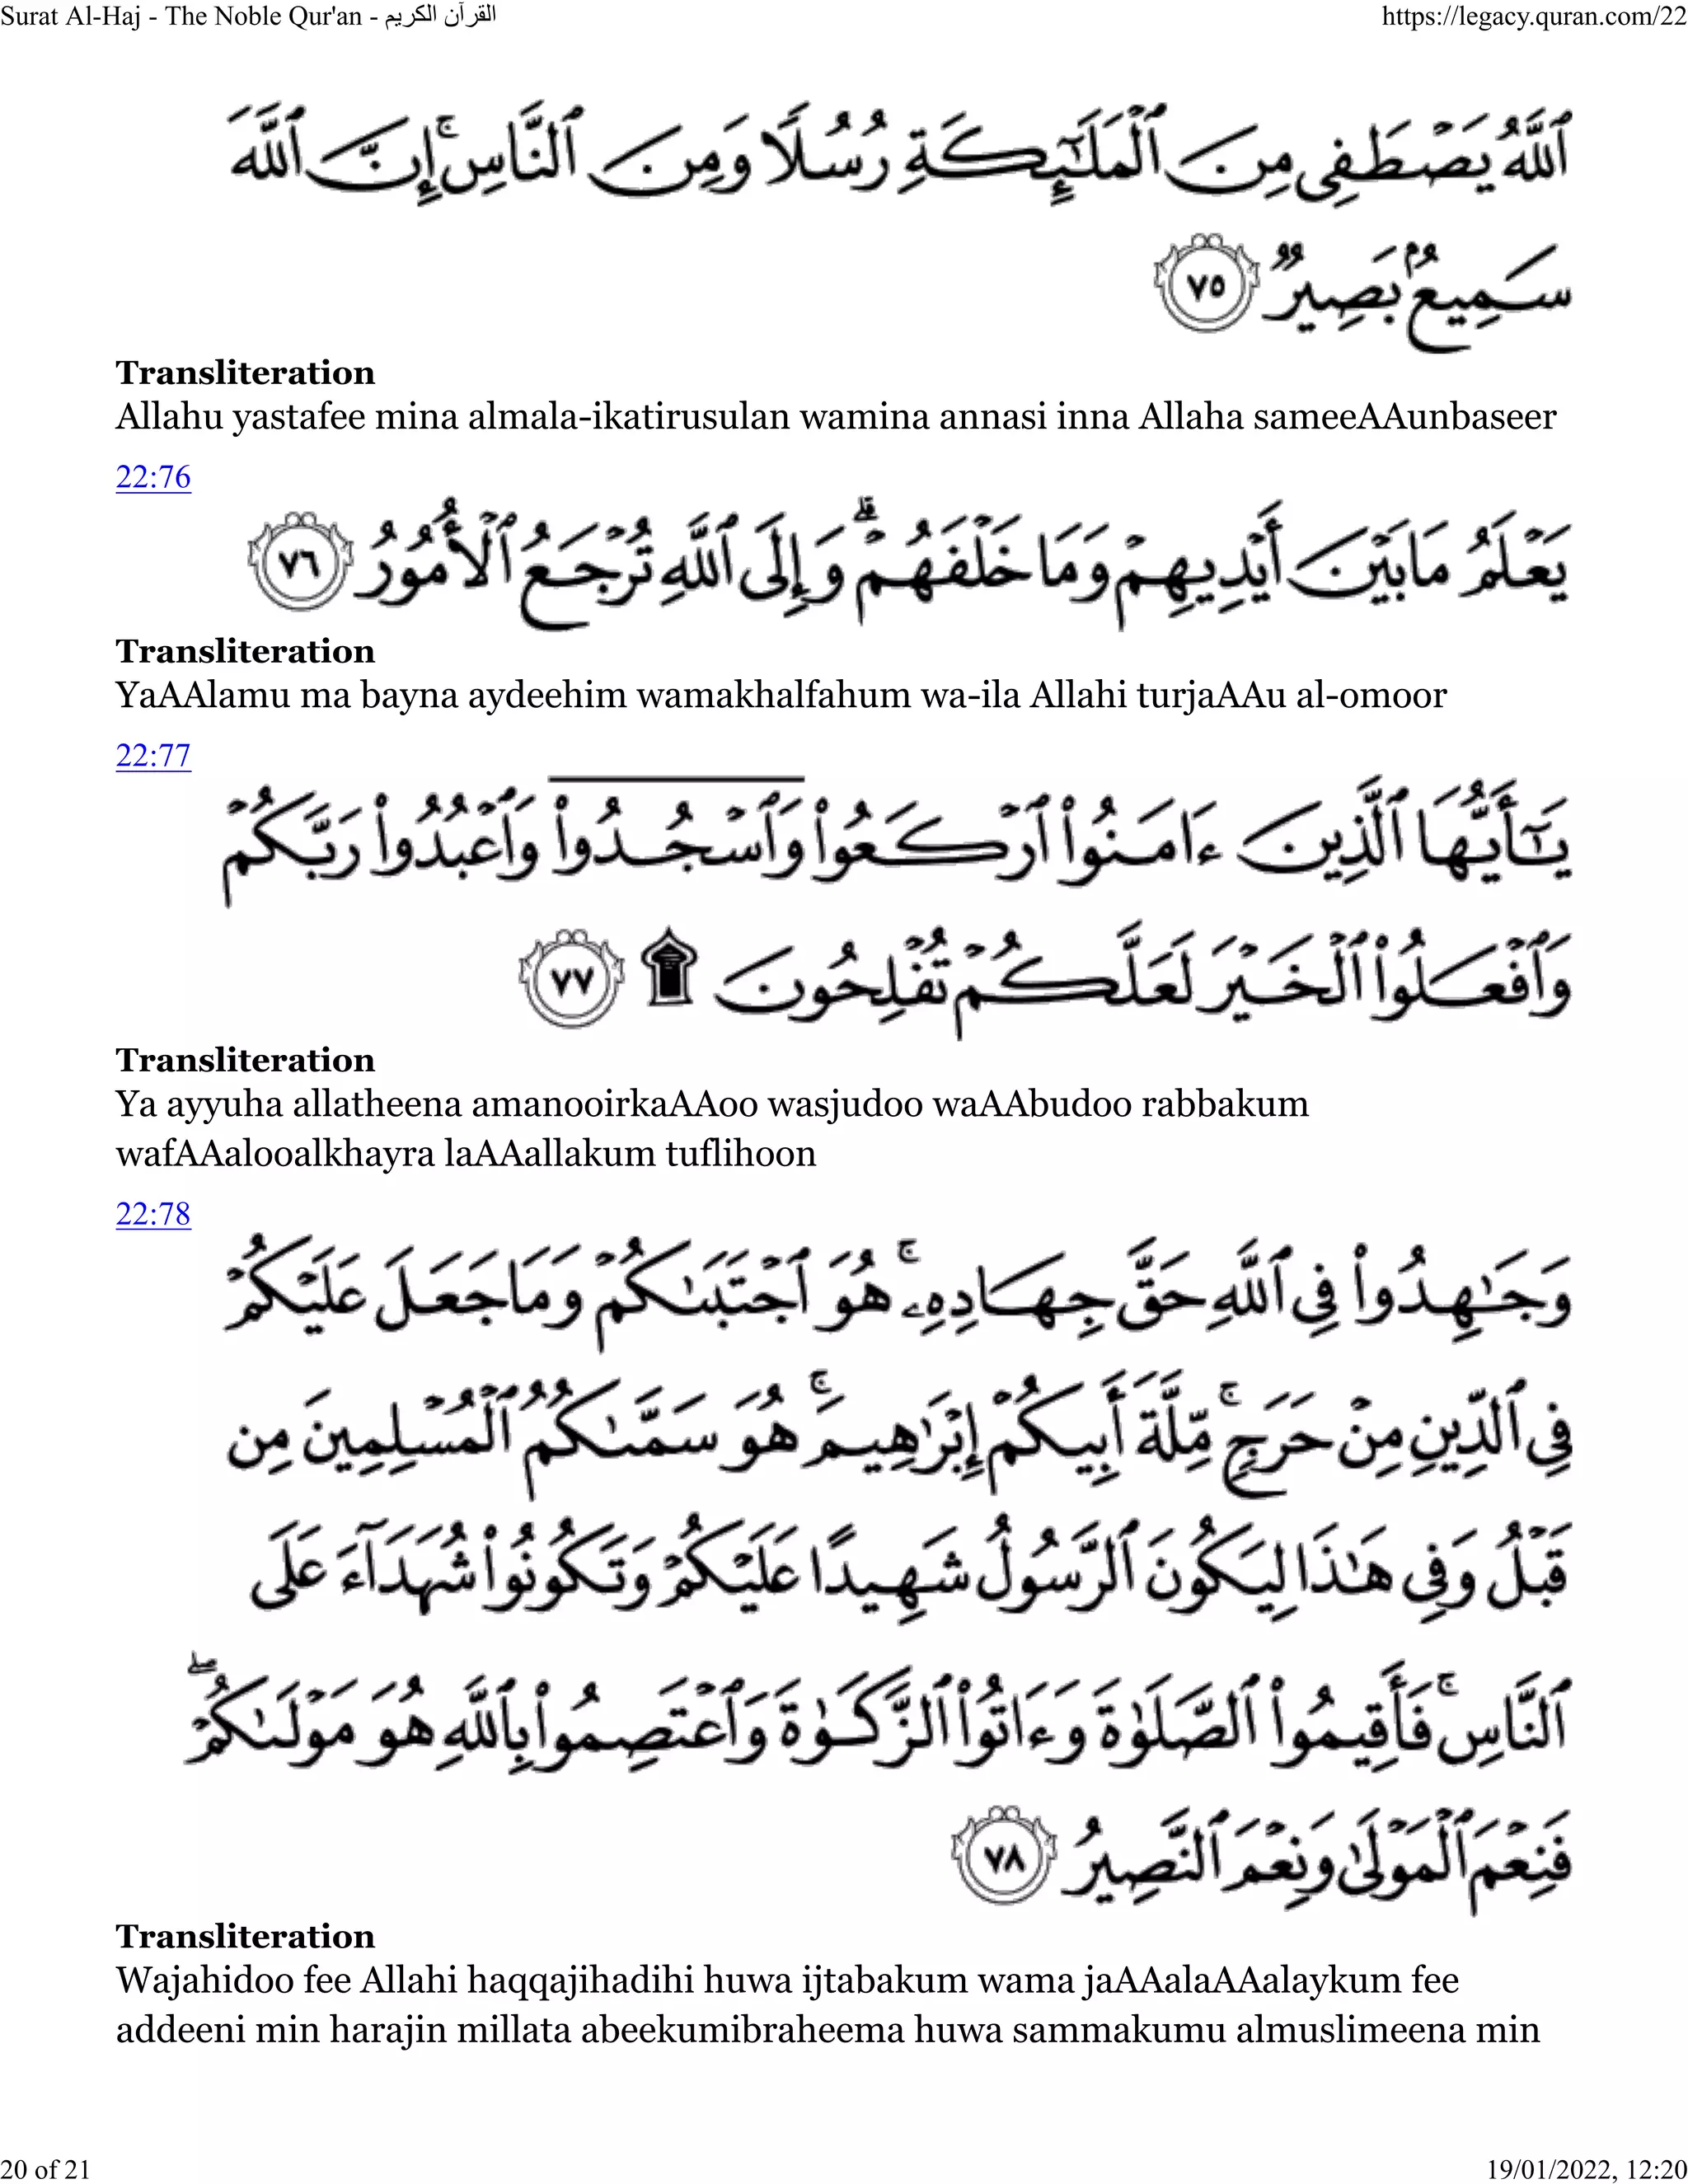 Surat Al-Haj - The Noble Qur'an - القرآن الكريم
https://legacy.quran.com/22
ٱللَّهُ يَصْطَفِى مِنَ ٱلْمَلَـٰٓئِكَةِ رُسُلًا وَمِنَ ٱلنَّاسِ ۚ إِنَّ ٱللَّهَ
سَمِيعٌۢ بَصِيرٌ ٧٥
Transliteration
Allahu yastafee mina almala-ikatirusulan wamina annasi inna Allaha sameeAAunbaseer
22:76
يَعْلَمُ مَا بَيْنَ أَيْدِيهِمْ وَمَا خَلْفَهُمْ ۗ وَإِلَى ٱللَّهِ تُرْجَعُ ٱلْأُمُورُ ٧٦
Transliteration
YaAAlamu ma bayna aydeehim wamakhalfahum wa-ila Allahi turjaAAu al-omoor
22:77
يَـٰٓأَيُّهَا ٱلَّذِينَ ءَامَنُوا۟ ٱرْكَعُوا۟ وَٱسْجُدُوا۟ وَٱعْبُدُوا۟ رَبَّكُمْ
وَٱفْعَلُوا۟ ٱلْخَيْرَ لَعَلَّكُمْ تُفْلِحُونَ ۩ ٧٧
Transliteration
Ya ayyuha allatheena amanooirkaAAoo wasjudoo waAAbudoo rabbakum
wafAAalooalkhayra laAAallakum tuflihoon
22:78
وَجَـٰهِدُوا۟ فِى ٱللَّهِ حَقَّ جِهَادِهِۦ ۚ هُوَ ٱجْتَبَىٰكُمْ وَمَا جَعَلَ عَلَيْكُمْ
فِى ٱلدِّينِ مِنْ حَرَجٍ ۚ مِّلَّةَ أَبِيكُمْ إِبْرَٰهِيمَ ۚ هُوَ سَمَّىٰكُمُ ٱلْمُسْلِمِينَ مِن
قَبْلُ وَفِى هَـٰذَا لِيَكُونَ ٱلرَّسُولُ شَهِيدًا عَلَيْكُمْ وَتَكُونُوا۟ شُهَدَآءَ عَلَى
ٱلنَّاسِ ۚ فَأَقِيمُوا۟ ٱلصَّلَوٰةَ وَءَاتُوا۟ ٱلزَّكَوٰةَ وَٱعْتَصِمُوا۟ بِٱللَّهِ هُوَ مَوْلَىٰكُمْ ۖ
فَنِعْمَ ٱلْمَوْلَىٰ وَنِعْمَ ٱلنَّصِيرُ ٧٨
Transliteration
Wajahidoo fee Allahi haqqajihadihi huwa ijtabakum wama jaAAalaAAalaykum fee
addeeni min harajin millata abeekumibraheema huwa sammakumu almuslimeena min
20 of 21
19/01/2022, 12:20